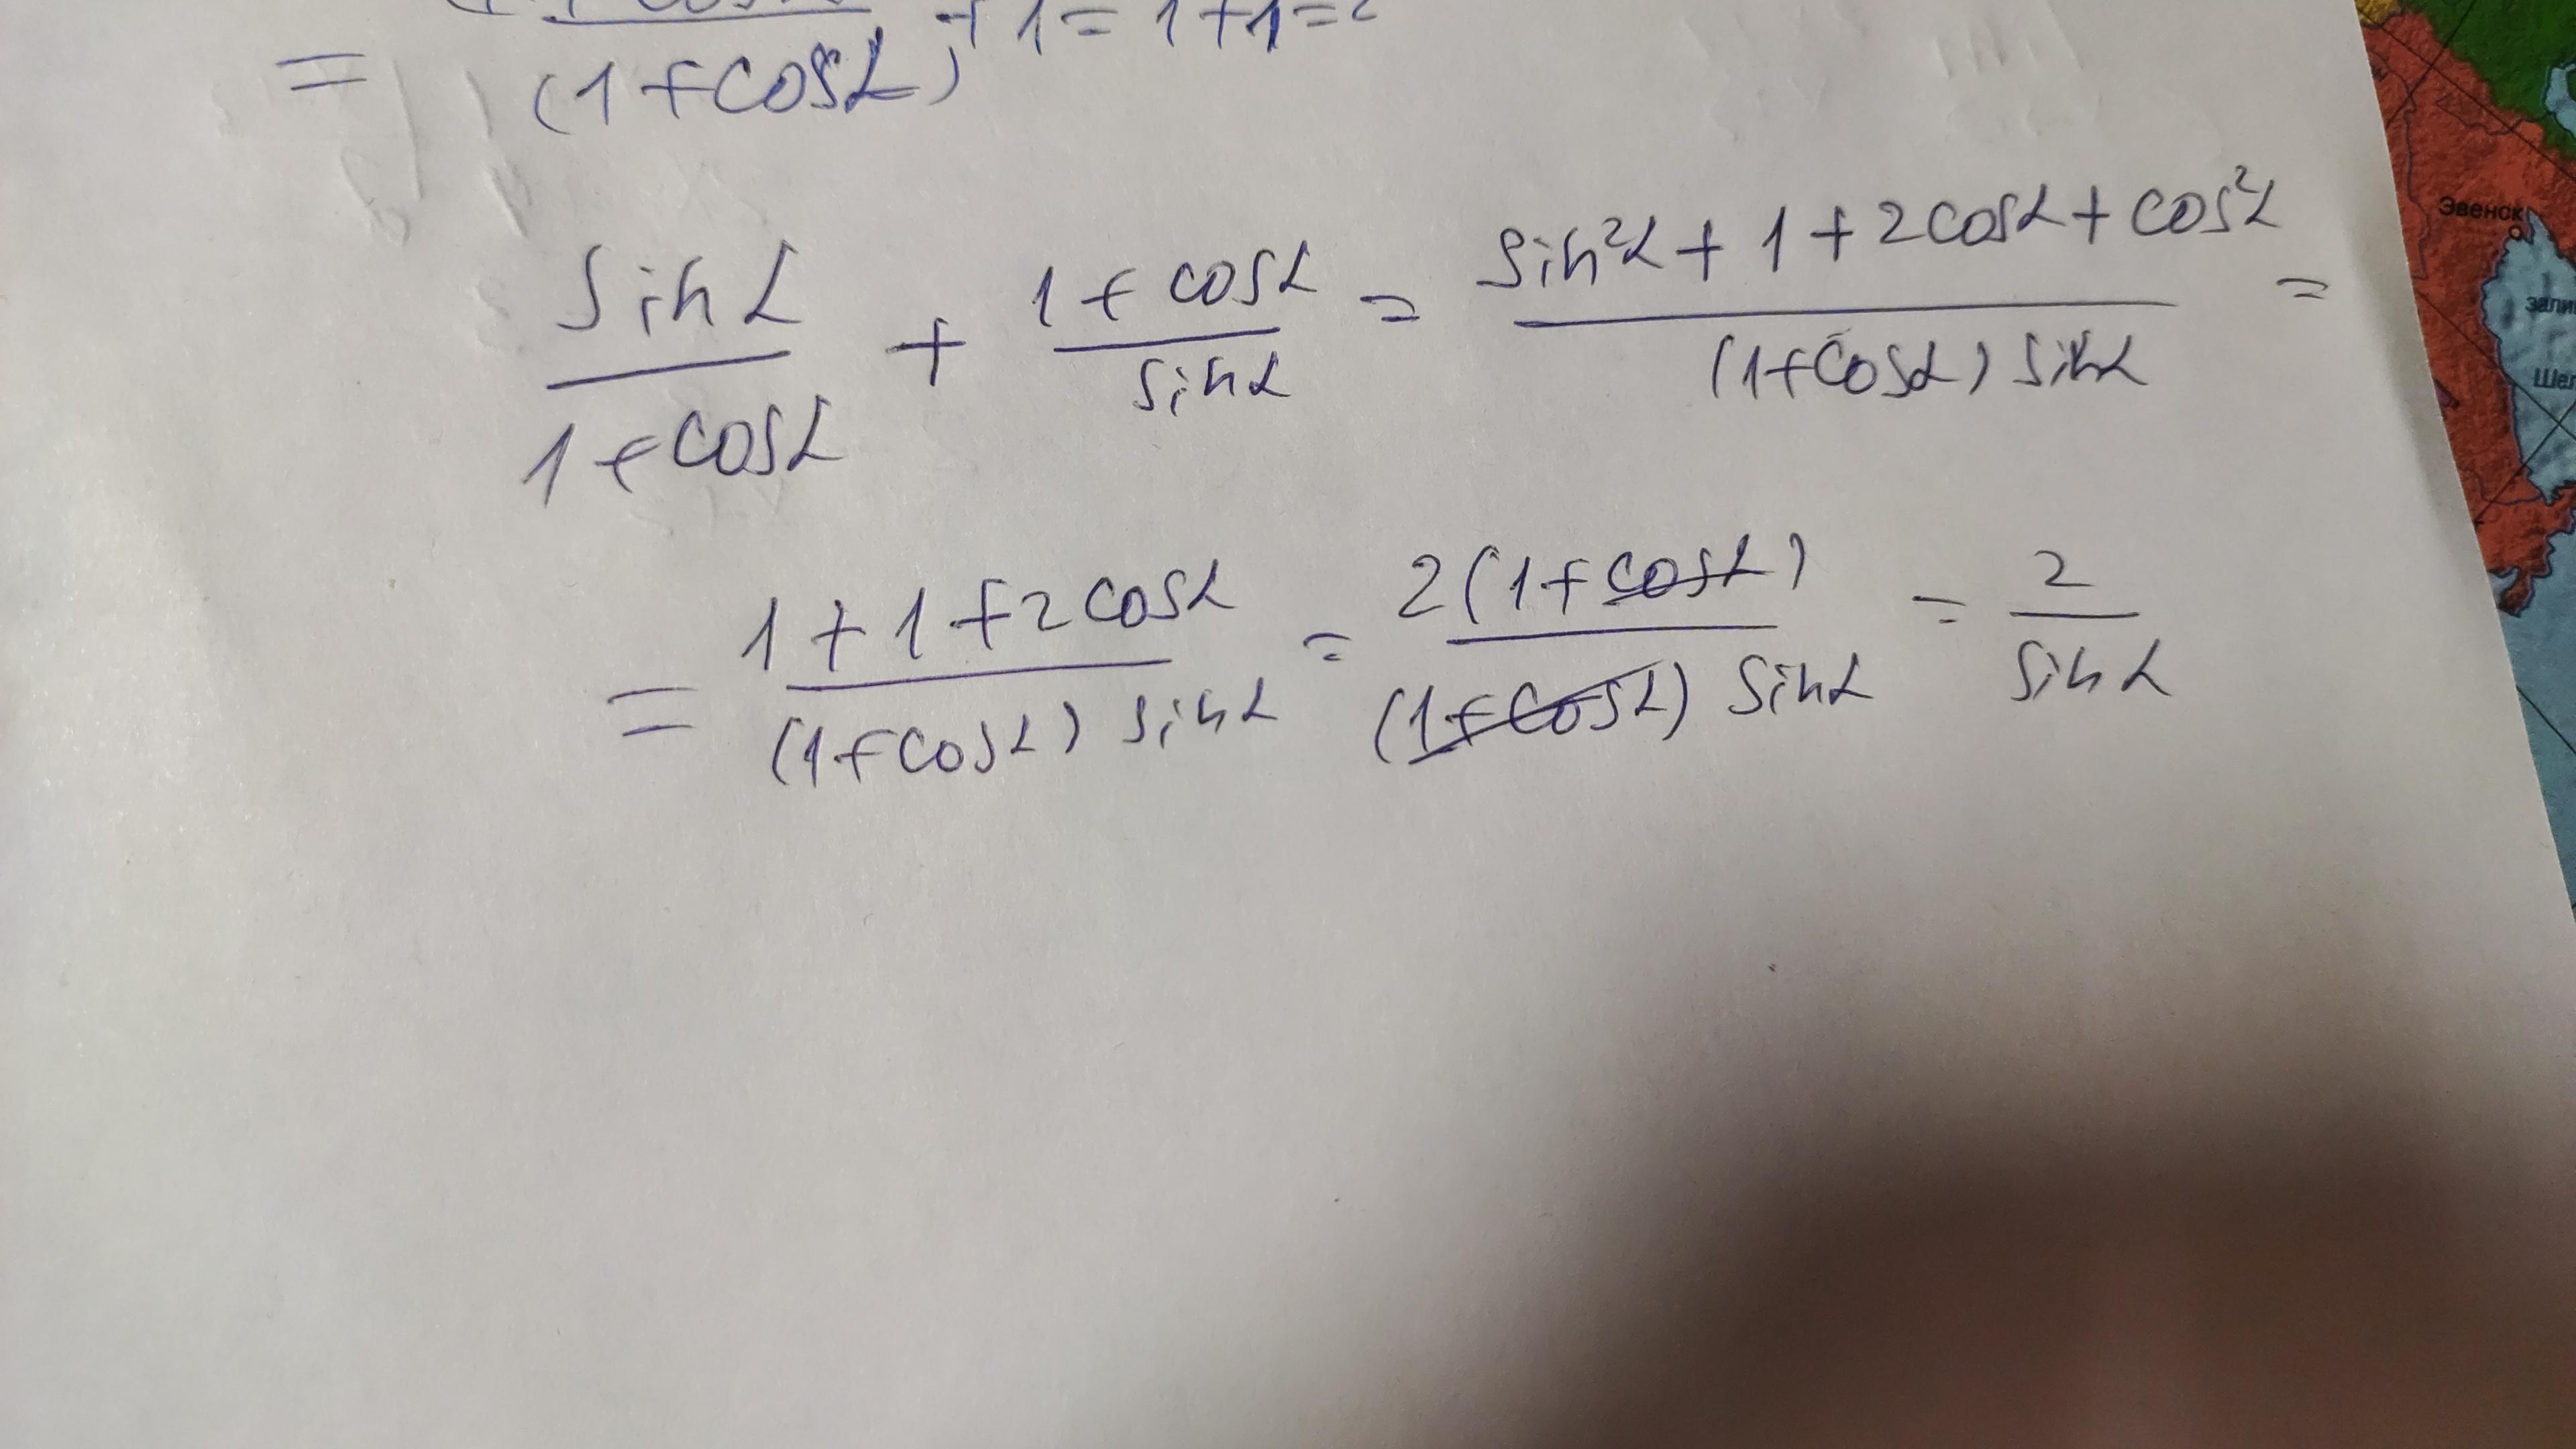 = (1+cosα) + 1 = 1+1=2
sinα/(1+cosα) + (1+cosα)/sinα = (sin²α + 1 + 2cosα + cos²α)/((1+cosα) sinα) =
= (1+1+2cosα)/((1+cosα) sinα) = 2(1+cosα)/((1+cosα) sinα) = 2/sinα
Эвенск